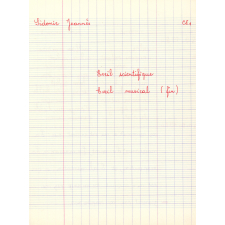 Sidonie Jeannée CE1
Éveil scientifique
Éveil musical (fin)